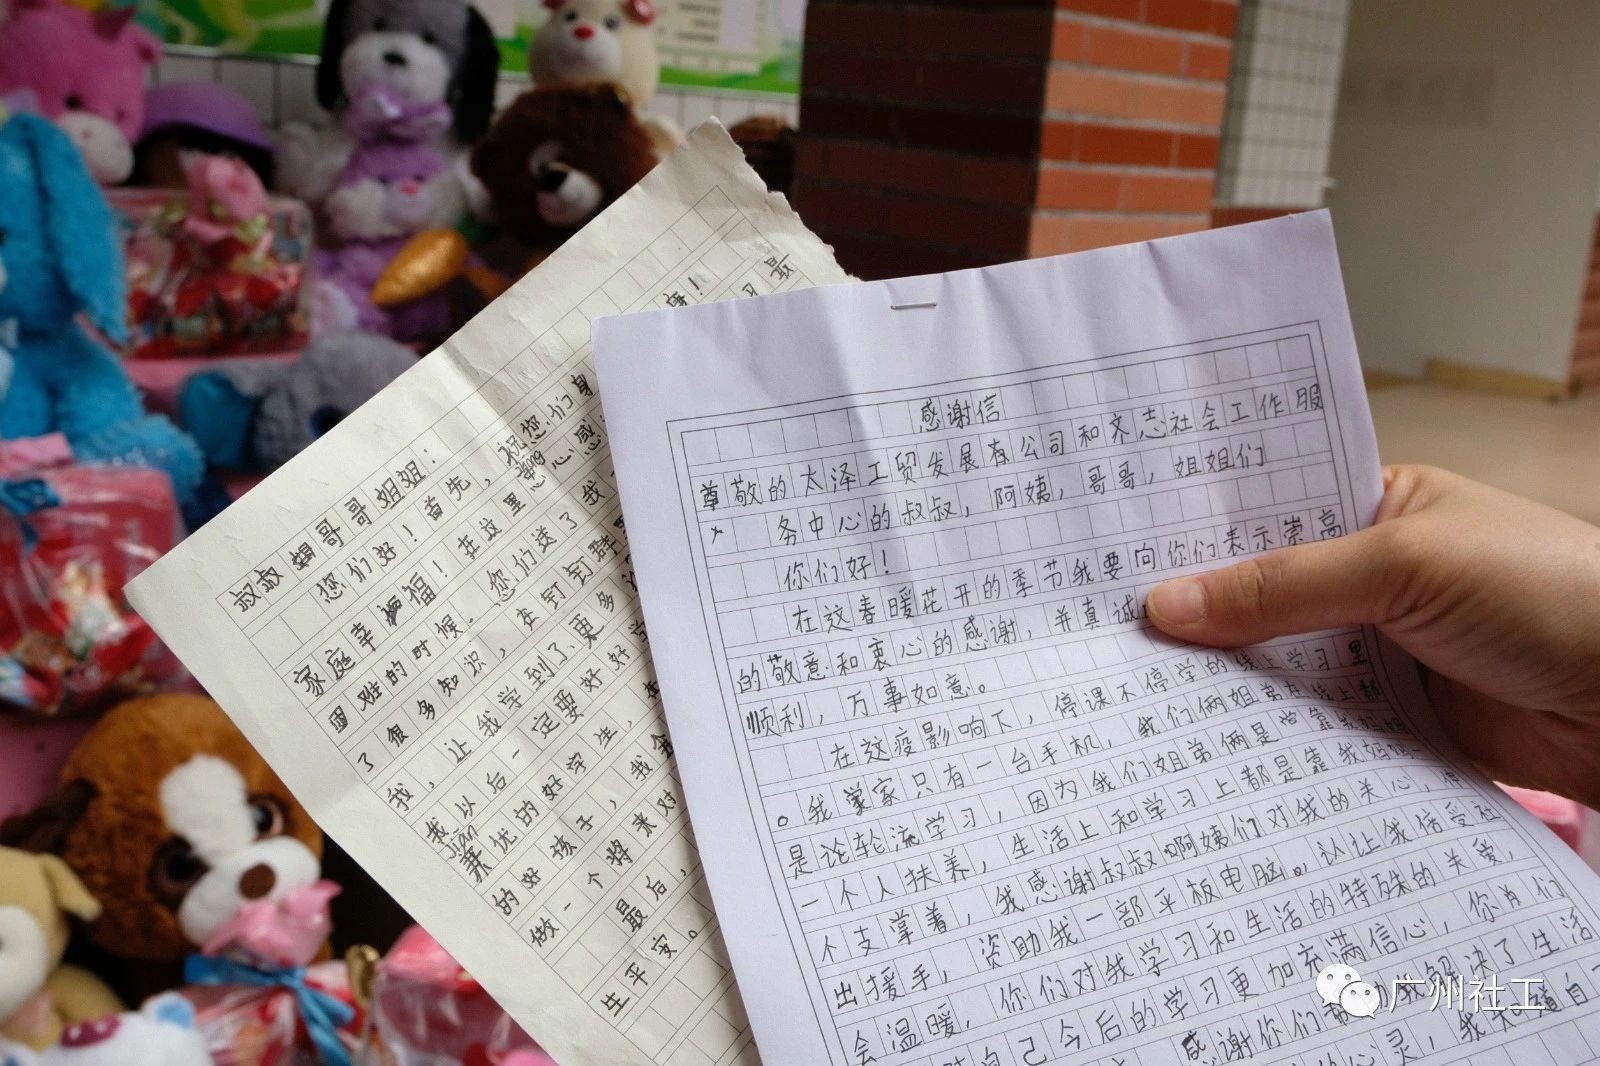 叔叔姐哥哥姐姐:
您们好!首先,祝您们身
家庭幸福!在这里
困难的时候.您们送了我
了很多知识,在钉钉群里
我,让我学到了更多
我以后一定要好好学
兼优的好学生,
的好孩子,我会
做一个将来对
最后,
生平安。
感谢信
尊敬的太泽工贸发展有公司和齐志社会工作服
务中心的叔叔,阿姨,哥哥,姐姐们
你们好!
在这春暖花开的季节我要向你们表示崇高
的敬意和衷心的感谢,并真诚
顺利,万事如意。
在这疫影响下,停课不停学的线上学习里
。我家只有一台手机,我们俩姐弟在线上都
是论轮流学习,因为我们姐弟俩是
一个人扶养,生活上和学习上都是靠我妈妈一
个支掌着,我感谢叔叔啊姨们对我的关心,伸
出援手,资助我一部平板电脑。认让我倍受社
会温暖,你们对我学习和生活的特殊的关爱,
自己今后的学习更加充满信心,你肖们
感谢你们帮助我解决了生活
心灵,我知道自
广州社工